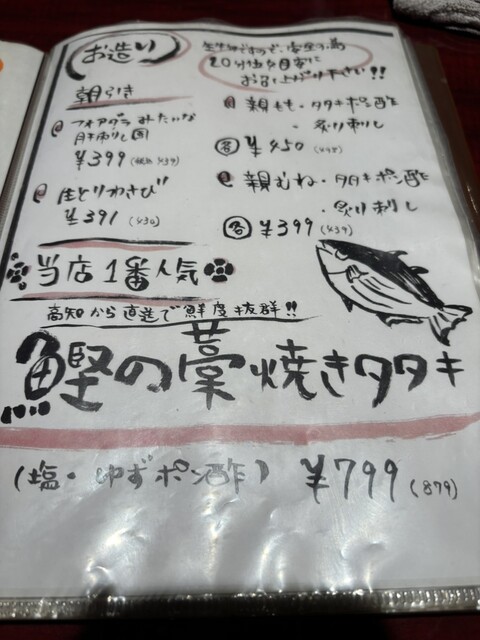 お造り
生ものですので、安全の為
20分位を目安に
お召し上がり下さい!!
朝引き
フォアグラみたいな
肝刺し 
¥399 (税込439)
生とりわさび
¥391 (430)
親もも・タタキポン酢
・炙り刺し
各 ¥450 (495)
親むね・タタキポン酢
・炙り刺し
各 ¥399 (439)
当店1番人気
高知から直送で鮮度抜群!!
鰹の藁焼きタタキ
(塩・ゆずポン酢) ¥799 (879)